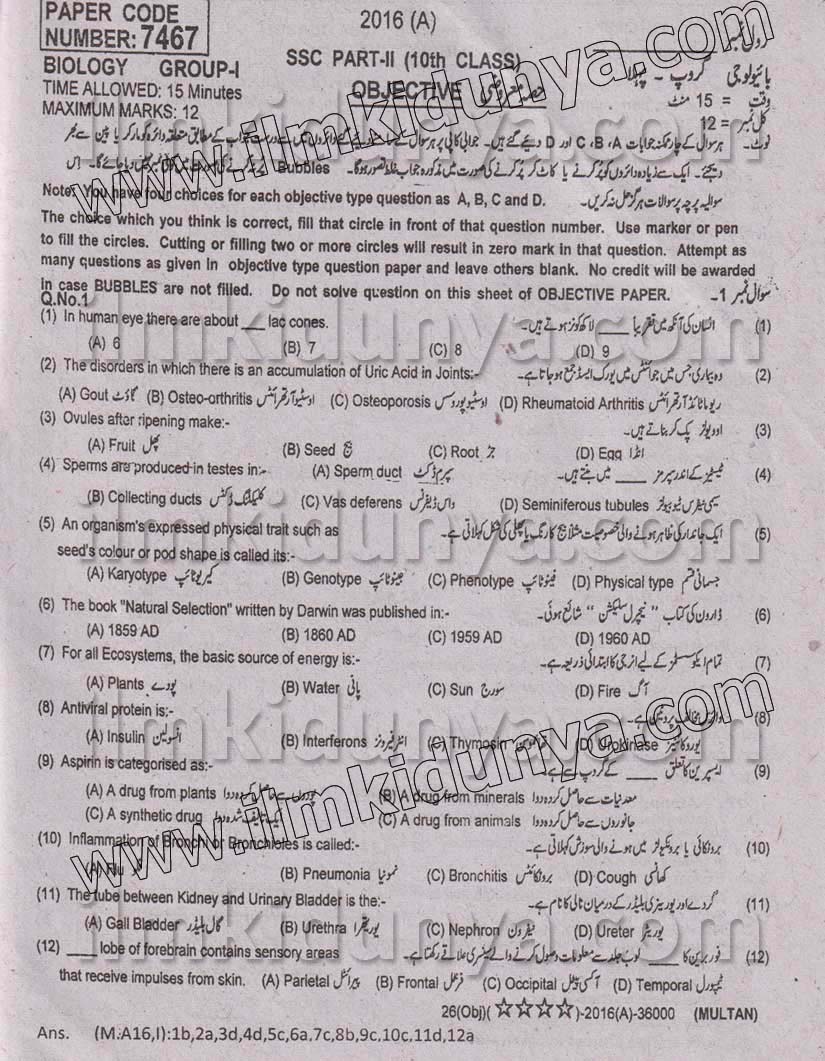 PAPER CODE
NUMBER: 7467
2016 (A)
رول نمبر
SSC PART-II (10th CLASS)
BIOLOGY GROUP-I
OBJECTIVE
بائیولوجی گروپ - پہلا
TIME ALLOWED: 15 Minutes
وقت = 15 منٹ
MAXIMUM MARKS: 12
کل نمبر = 12
نوٹ- ہر سوال کے چار ممکنہ جوابات C ، B ، A اور D دیئے گئے ہیں۔ جوابی کاپی پر ہر سوال کے سامنے دیئے گئے دائروں میں سے درست جواب کے مطابق متعلقہ دائرہ کو مارکر یا پین سے بھر
دیجئے۔ ایک سے زیادہ دائروں کو پُر کرنے یا کاٹ کر پُر کرنے کی صورت میں مذکورہ جواب غلط تصور ہوگا۔ Bubbles
Note: You have four choices for each objective type question as A, B, C and D. سوالیہ پرچہ پر سوالات ہرگز حل نہ کریں۔
The choice which you think is correct, fill that circle in front of that question number. Use marker or pen
to fill the circles. Cutting or filling two or more circles will result in zero mark in that question. Attempt as
many questions as given in objective type question paper and leave others blank. No credit will be awarded
in case BUBBLES are not filled. Do not solve question on this sheet of OBJECTIVE PAPER. سوال نمبر 1-
Q.No.1
(1) In human eye there are about ___ lac cones. انسان کی آنکھ میں تقریباً ___ لاکھ کونز ہوتے ہیں۔ (1)
(A) 6 (B) 7 (C) 8 (D) 9
(2) The disorders in which there is an accumulation of Uric Acid in Joints:- وہ بیماری جس میں جوائنٹس میں یورک ایسڈ جمع ہو جاتا ہے۔ (2)
(A) Gout گاؤٹ (B) Osteo-orthritis اوسٹیو آرتھرائٹس (C) Osteoporosis اوسٹیوپوروسس (D) Rheumatoid Arthritis ریوماٹائڈ آرتھرائٹس
(3) Ovules after ripening make:- اوویولز پک کر بناتے ہیں۔ (3)
(A) Fruit پھل (B) Seed بیج (C) Root جڑ (D) Egg انڈا
(4) Sperms are produced in testes in:- (A) Sperm duct سپرم ڈکٹ ٹیسٹیز کے اندر سپرمز ___ میں بنتے ہیں۔ (4)
(B) Collecting ducts کلیکٹنگ ڈکٹس (C) Vas deferens واس ڈیفرنس (D) Seminiferous tubules سیمی نیفرس ٹیوبیولز
(5) An organism's expressed physical trait such as ایک جاندار کی ظاہر ہونے والی خصوصیت مثلاً بیج کا رنگ یا پھلی کی شکل کہلاتی ہے۔ (5)
seed's colour or pod shape is called its:-
(A) Karyotype کیریوٹائپ (B) Genotype جینوٹائپ (C) Phenotype فینوٹائپ (D) Physical type جسمانی قسم
(6) The book "Natural Selection" written by Darwin was published in:- ڈارون کی کتاب " نیچرل سلیکشن " شائع ہوئی۔ (6)
(A) 1859 AD (B) 1860 AD (C) 1959 AD (D) 1960 AD
(7) For all Ecosystems, the basic source of energy is:- تمام ایکوسسٹمز کے لیے انرجی کا ابتدائی ذریعہ ہے۔ (7)
(A) Plants پودے (B) Water پانی (C) Sun سورج (D) Fire آگ
(8) Antiviral protein is:- (8)
(A) Insulin انسولین (B) Interferons انٹرفیرونز (C) Thymosin (D) Urokinase یوروکائنیز
(9) Aspirin is categorised as:- ایسپرین کا تعلق ___ کے گروپ سے ہے۔ (9)
(A) A drug from plants پودوں سے حاصل کردہ دوا (B) A drug from minerals معدنیات سے حاصل کردہ دوا
(C) A synthetic drug (C) A drug from animals جانوروں سے حاصل کردہ دوا
(10) Inflammation of Bronchi or Bronchioles is called:- برونکائی یا برونکیولز میں ہونے والی سوزش کہلاتی ہے۔ (10)
(A) Flu فلو (B) Pneumonia نمونیا (C) Bronchitis برونکائٹس (D) Cough کھانسی
(11) The tube between Kidney and Urinary Bladder is the:- گردے اور یورینری بلیڈر کے درمیان نالی کا نام ہے۔ (11)
(A) Gall Bladder گال بلیڈر (B) Urethra یوریتھرا (C) Nephron نیفرون (D) Ureter یوریٹر
(12) ___ lobe of forebrain contains sensory areas فوربرین کا ___ لوب جلد سے معلومات وصول کرنے والے سینسری علاقے رکھتا ہے۔ (12)
that receive impulses from skin. (A) Parietal پیرائٹل (B) Frontal فرنٹل (C) Occipital آکسی پیٹل (D) Temporal ٹیمپورل
26(Obj)(☆☆☆☆)-2016(A)-36000 (MULTAN)
Ans. (M.A16,I):1b,2a,3d,4d,5c,6a,7c,8b,9c,10c,11d,12a
www.ilmkidunya.com
www.ilmkidunya.com
ilmkidunya.com
ilmkidunya.com
ilmkidunya.com
ilmkidunya.com
ilmkidunya.com
ilmkidunya.com